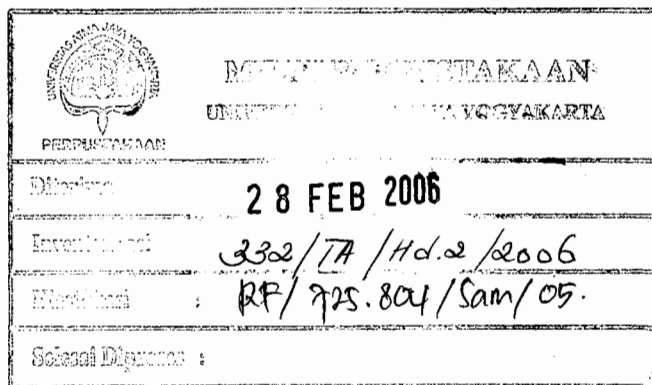 UNIVERSITAS ATMA JAYA YOGYAKARTA
PERPUSTAKAAN
MILIK PERPUSTAKAAN
UNIVERSITAS ATMA JAYA YOGYAKARTA
Diterima
28 FEB 2006
Inventarisasi
332/TA/Hd.2/2006
Klasifikasi : RF/725.804/Sam/05.
Selesai Diproses :